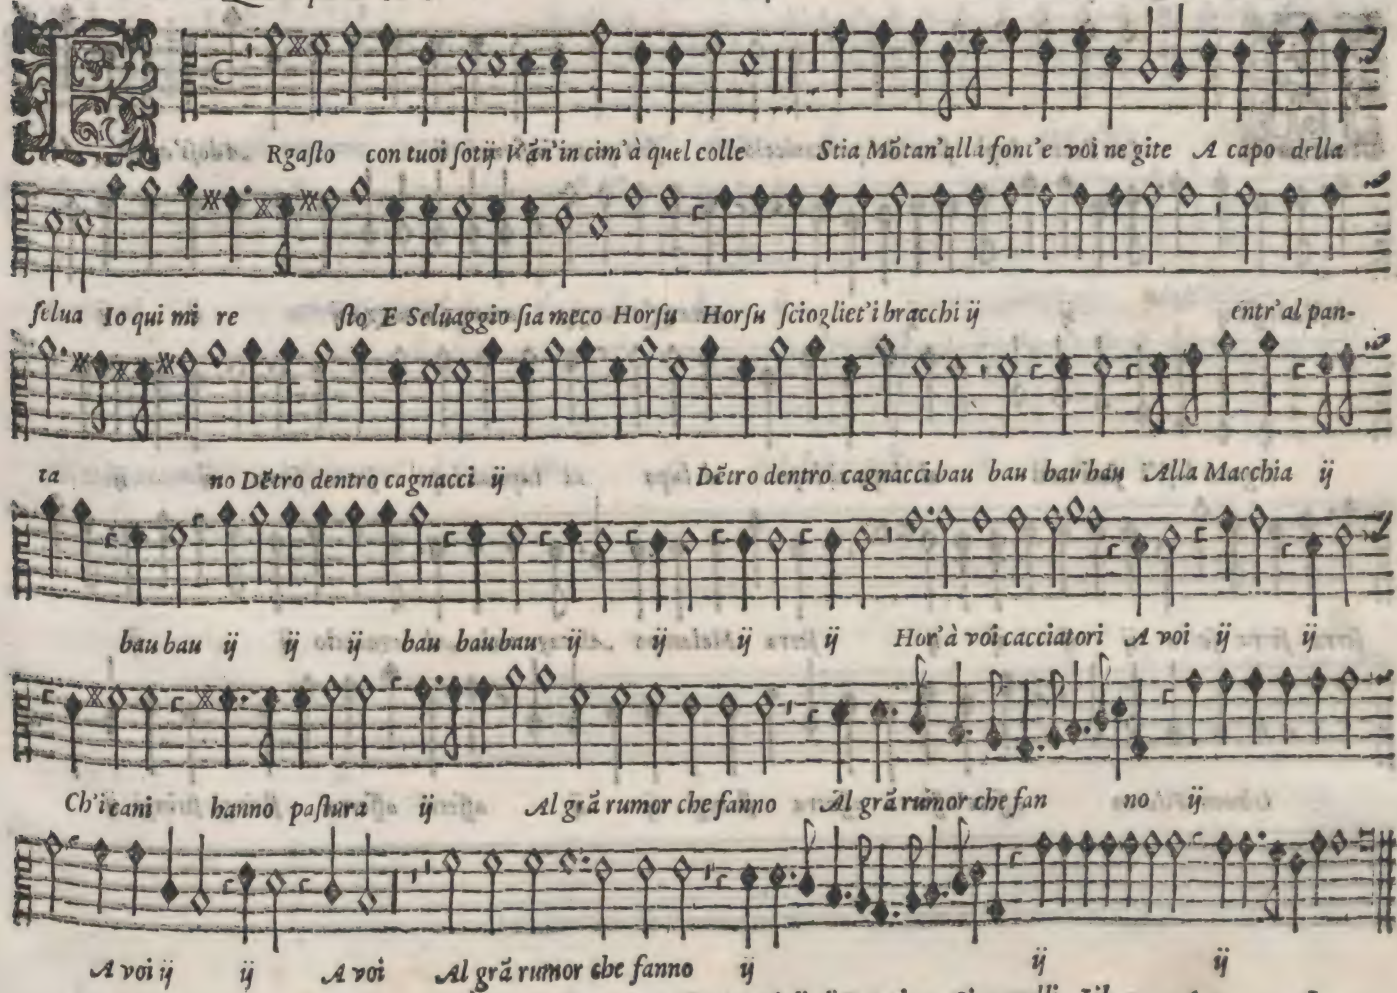 ERgaſto con tuoi ſotij Vãn'in cim'à quel colle Stia Mõtan'alla font'e voi ne gite A capo della
ſelua Io qui mi re ſto E Seluaggio ſia meco Horſu Horſu ſcioglier'i bracchi ij entr'al pan-
ta no Dẽtro dentro cagnacci ij Dẽtro dentro cagnacci bau bau bau bau Alla Macchia ij
bau bau ij ij ij bau bau bau ij ij ij ij Hor'à voi cacciatori A voi ij ij
Ch'i cani hanno paſtura ij Al grã rumor che fanno Al grã rumor che fan no ij
A voi ij ij A voi Al grã rumor che fanno ij ij ij